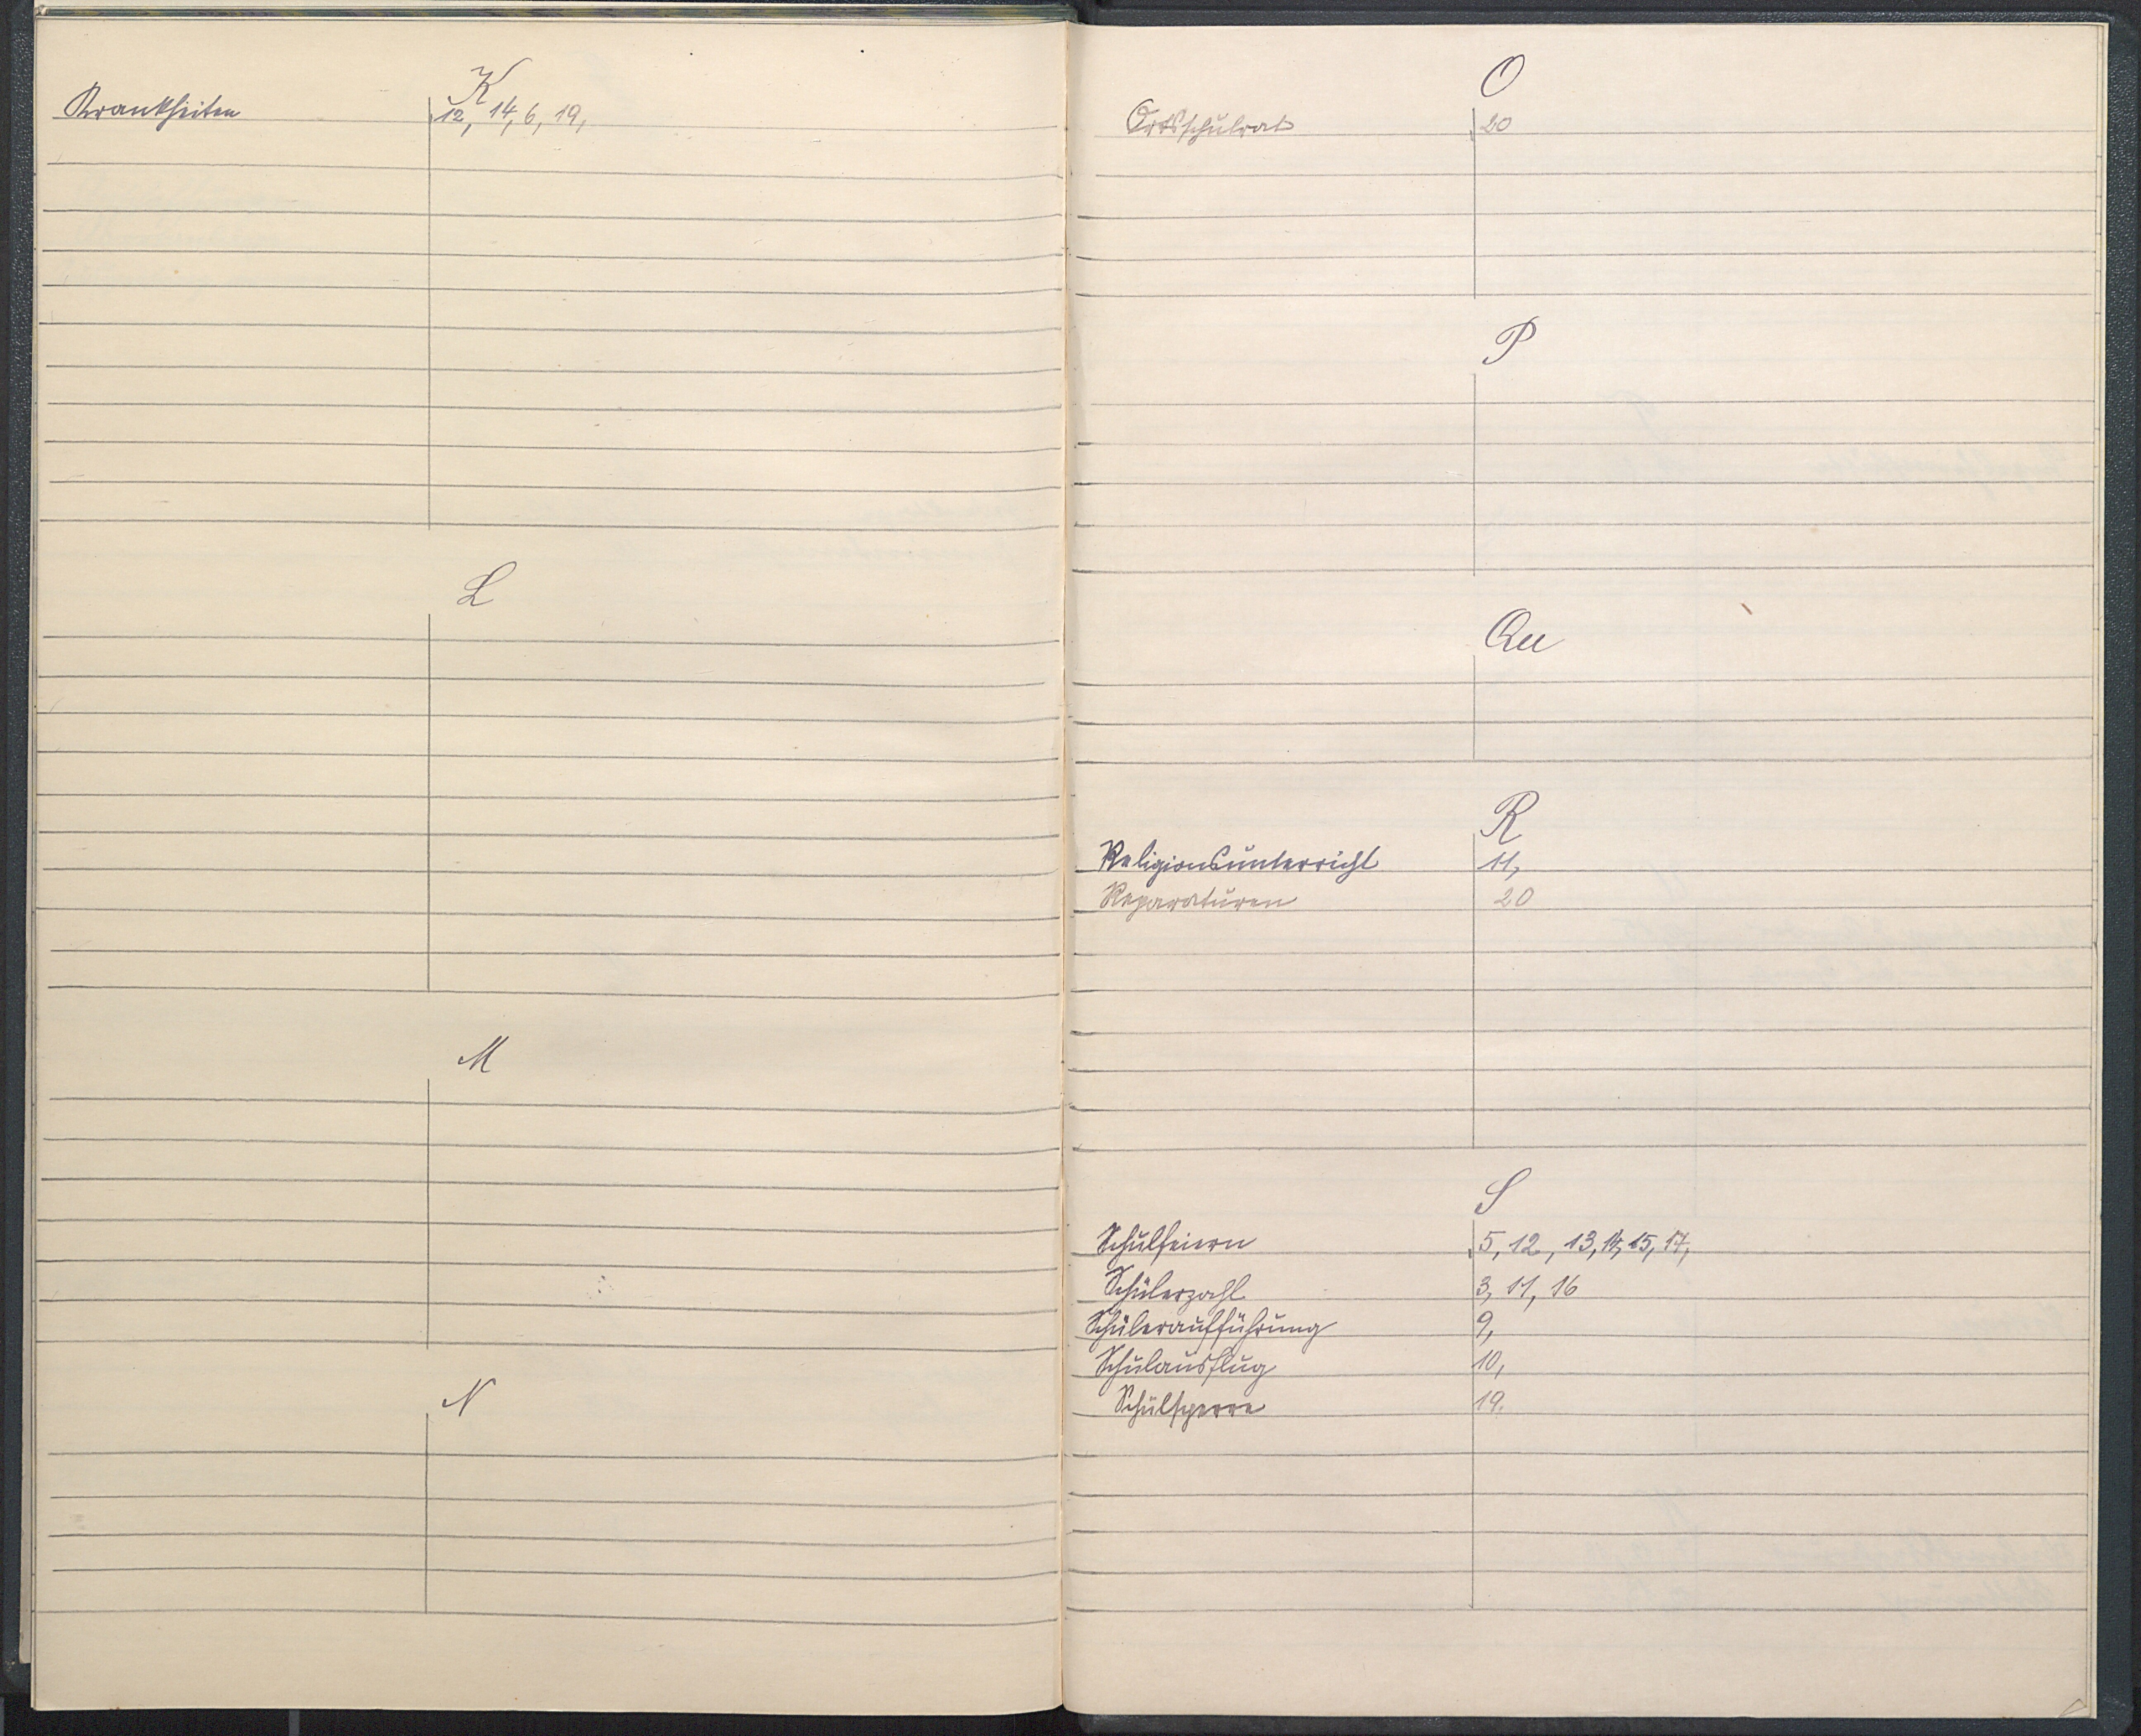 K
Krankheiten 12, 14, 6, 19,
L
M
N
O
Ortsschulrat 20
P
Qu
R
Religionsunterricht 11,
Reparaturen 20
S
Schulfeiern 5, 12, 13, 14, 15, 17,
Schülerzahl 3, 11, 16
Schüleraufführung 9,
Schulausflug 10,
Schulsperre 19.